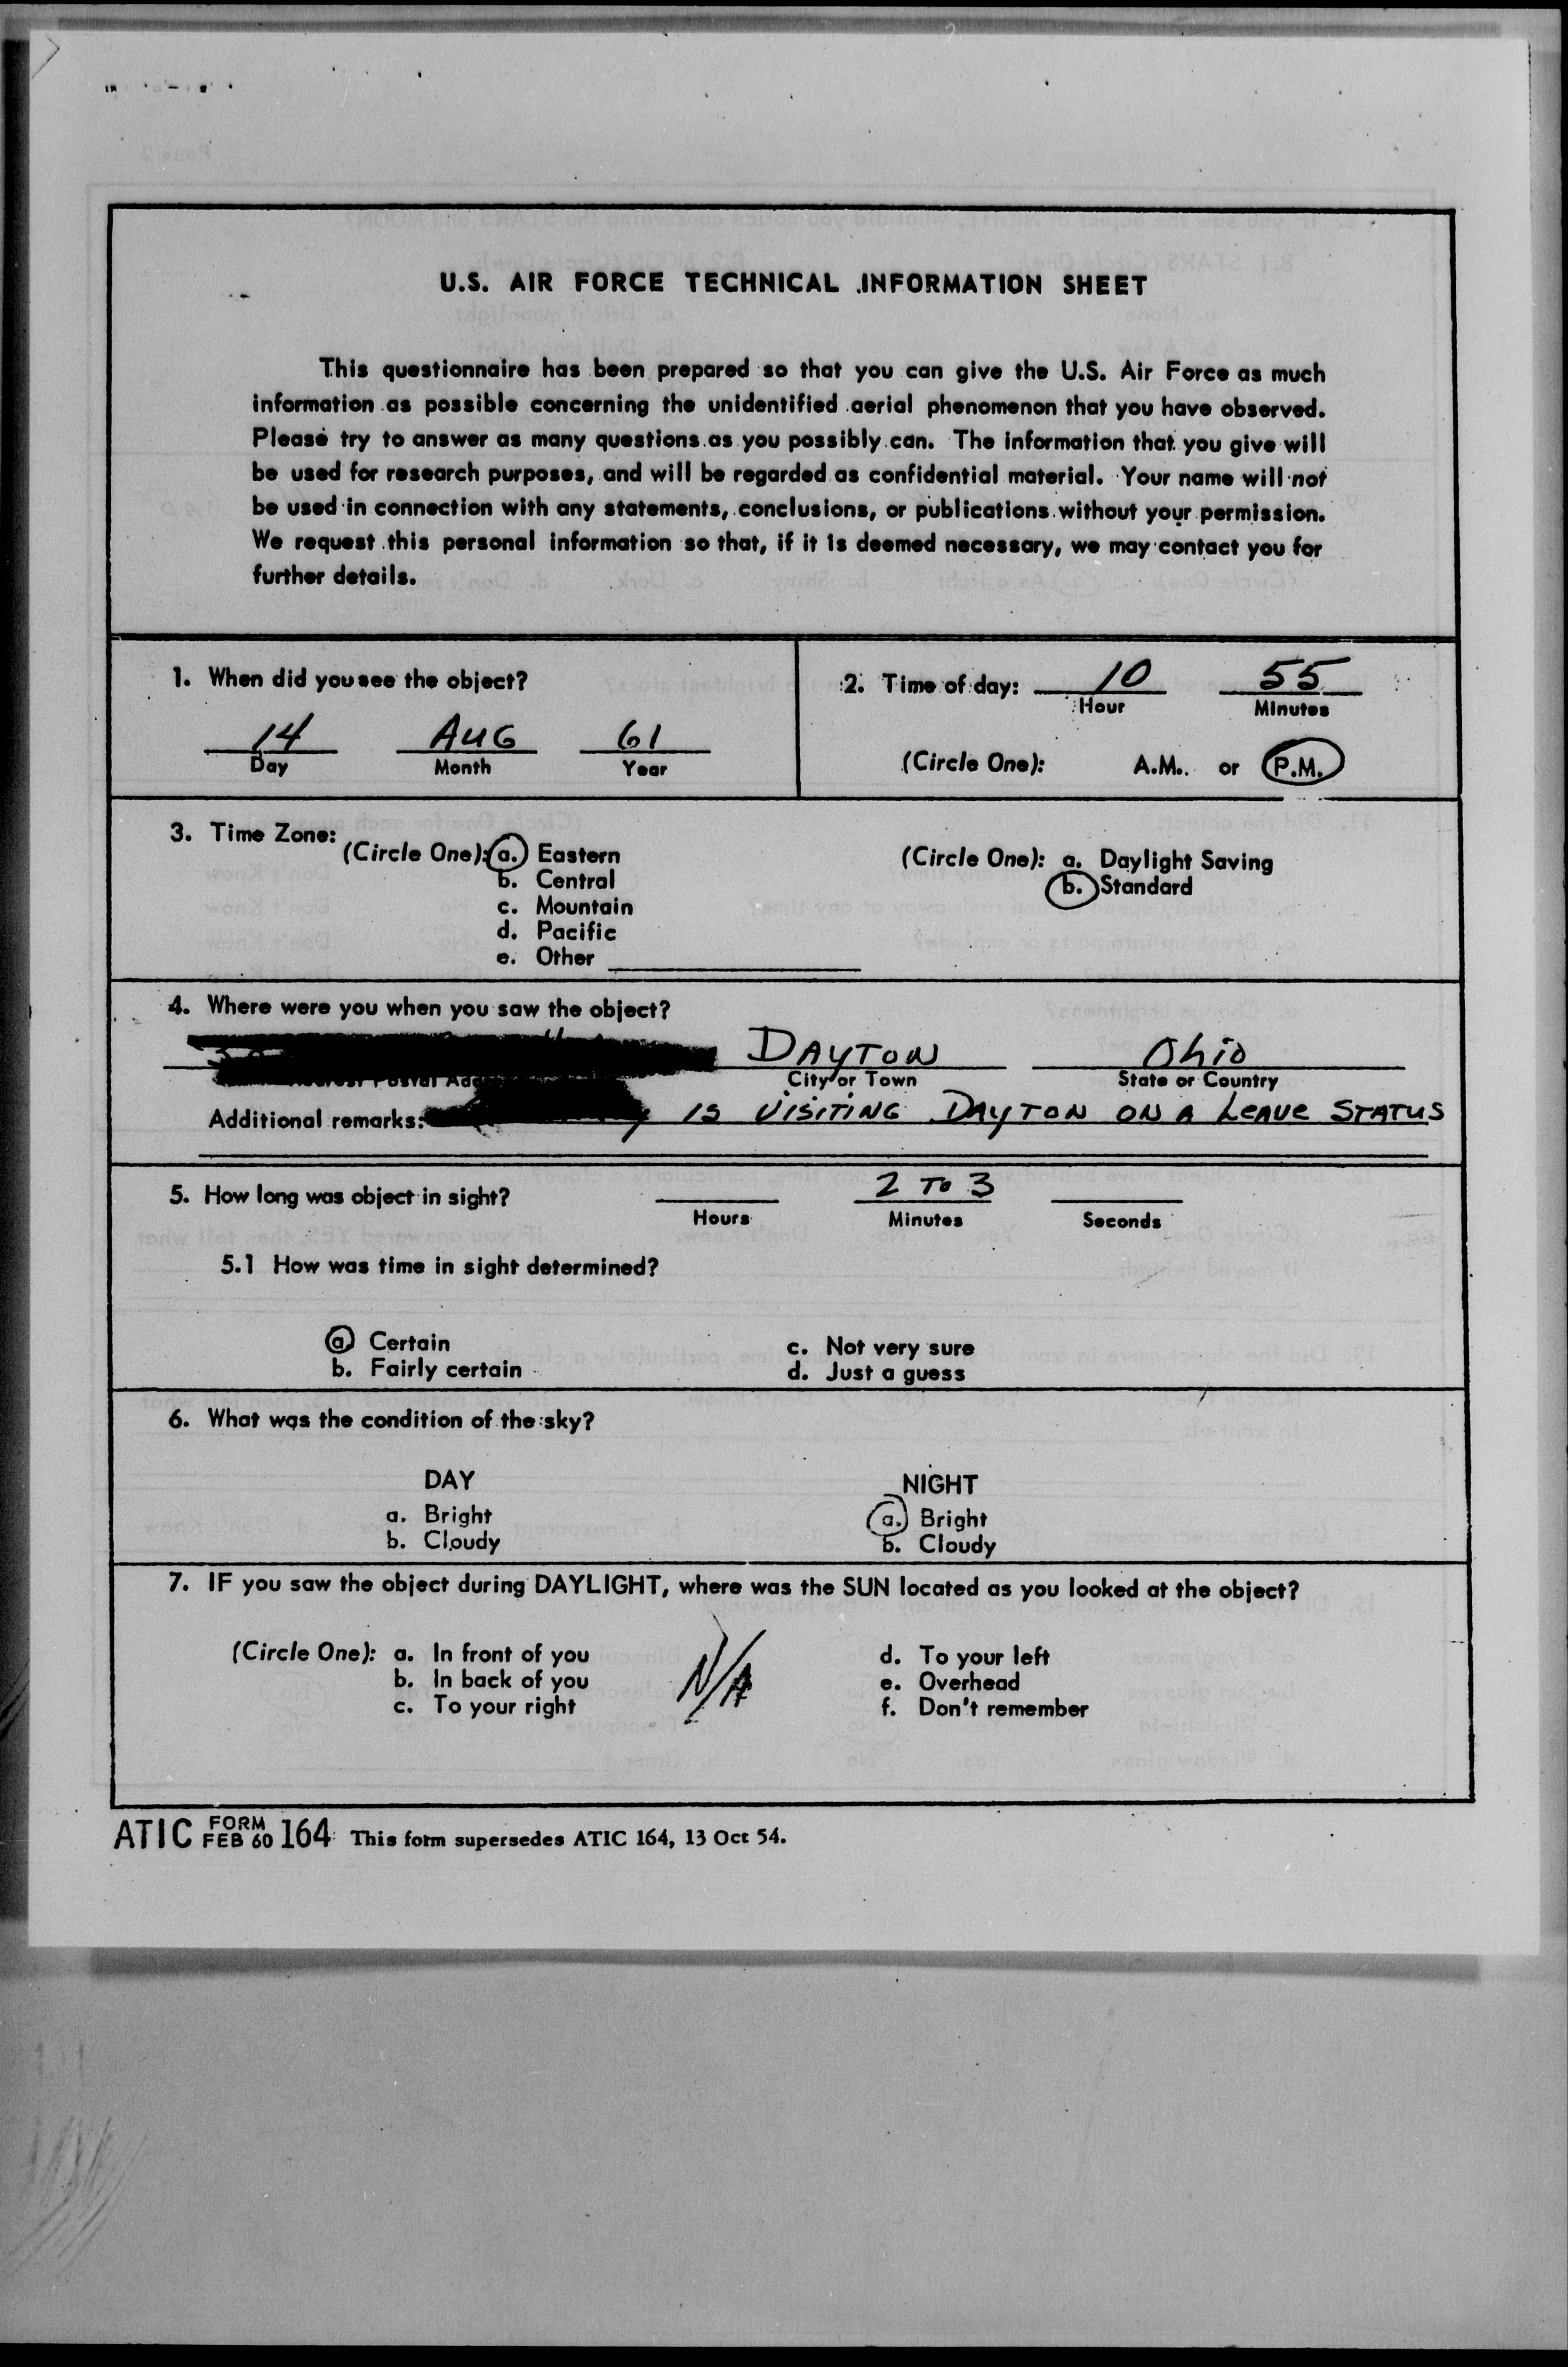 U.S. AIR FORCE TECHNICAL INFORMATION SHEET
This questionnaire has been prepared so that you can give the U.S. Air Force as much
information as possible concerning the unidentified aerial phenomenon that you have observed.
Please try to answer as many questions as you possibly can. The information that you give will
be used for research purposes, and will be regarded as confidential material. Your name will not
be used in connection with any statements, conclusions, or publications without your permission.
We request this personal information so that, if it is deemed necessary, we may contact you for
further details.
1. When did you see the object?
14 AUG 61
Day Month Year
2. Time of day: 10 55
Hour Minutes
(Circle One): A.M. or P.M.
3. Time Zone:
(Circle One): a. Eastern
b. Central
c. Mountain
d. Pacific
e. Other
(Circle One): a. Daylight Saving
b. Standard
4. Where were you when you saw the object?
DAYTON Ohio
Postal City or Town State or Country
Additional remarks: IS VISITING DAYTON ON A LEAVE STATUS
5. How long was object in sight? 2 TO 3
Hours Minutes Seconds
5.1 How was time in sight determined?
a. Certain
b. Fairly certain
c. Not very sure
d. Just a guess
6. What was the condition of the sky?
DAY
a. Bright
b. Cloudy
NIGHT
a. Bright
b. Cloudy
7. IF you saw the object during DAYLIGHT, where was the SUN located as you looked at the object?
(Circle One): a. In front of you
b. In back of you
c. To your right
N/A
d. To your left
e. Overhead
f. Don't remember
ATIC FORM FEB 60 164 This form supersedes ATIC 164, 13 Oct 54.